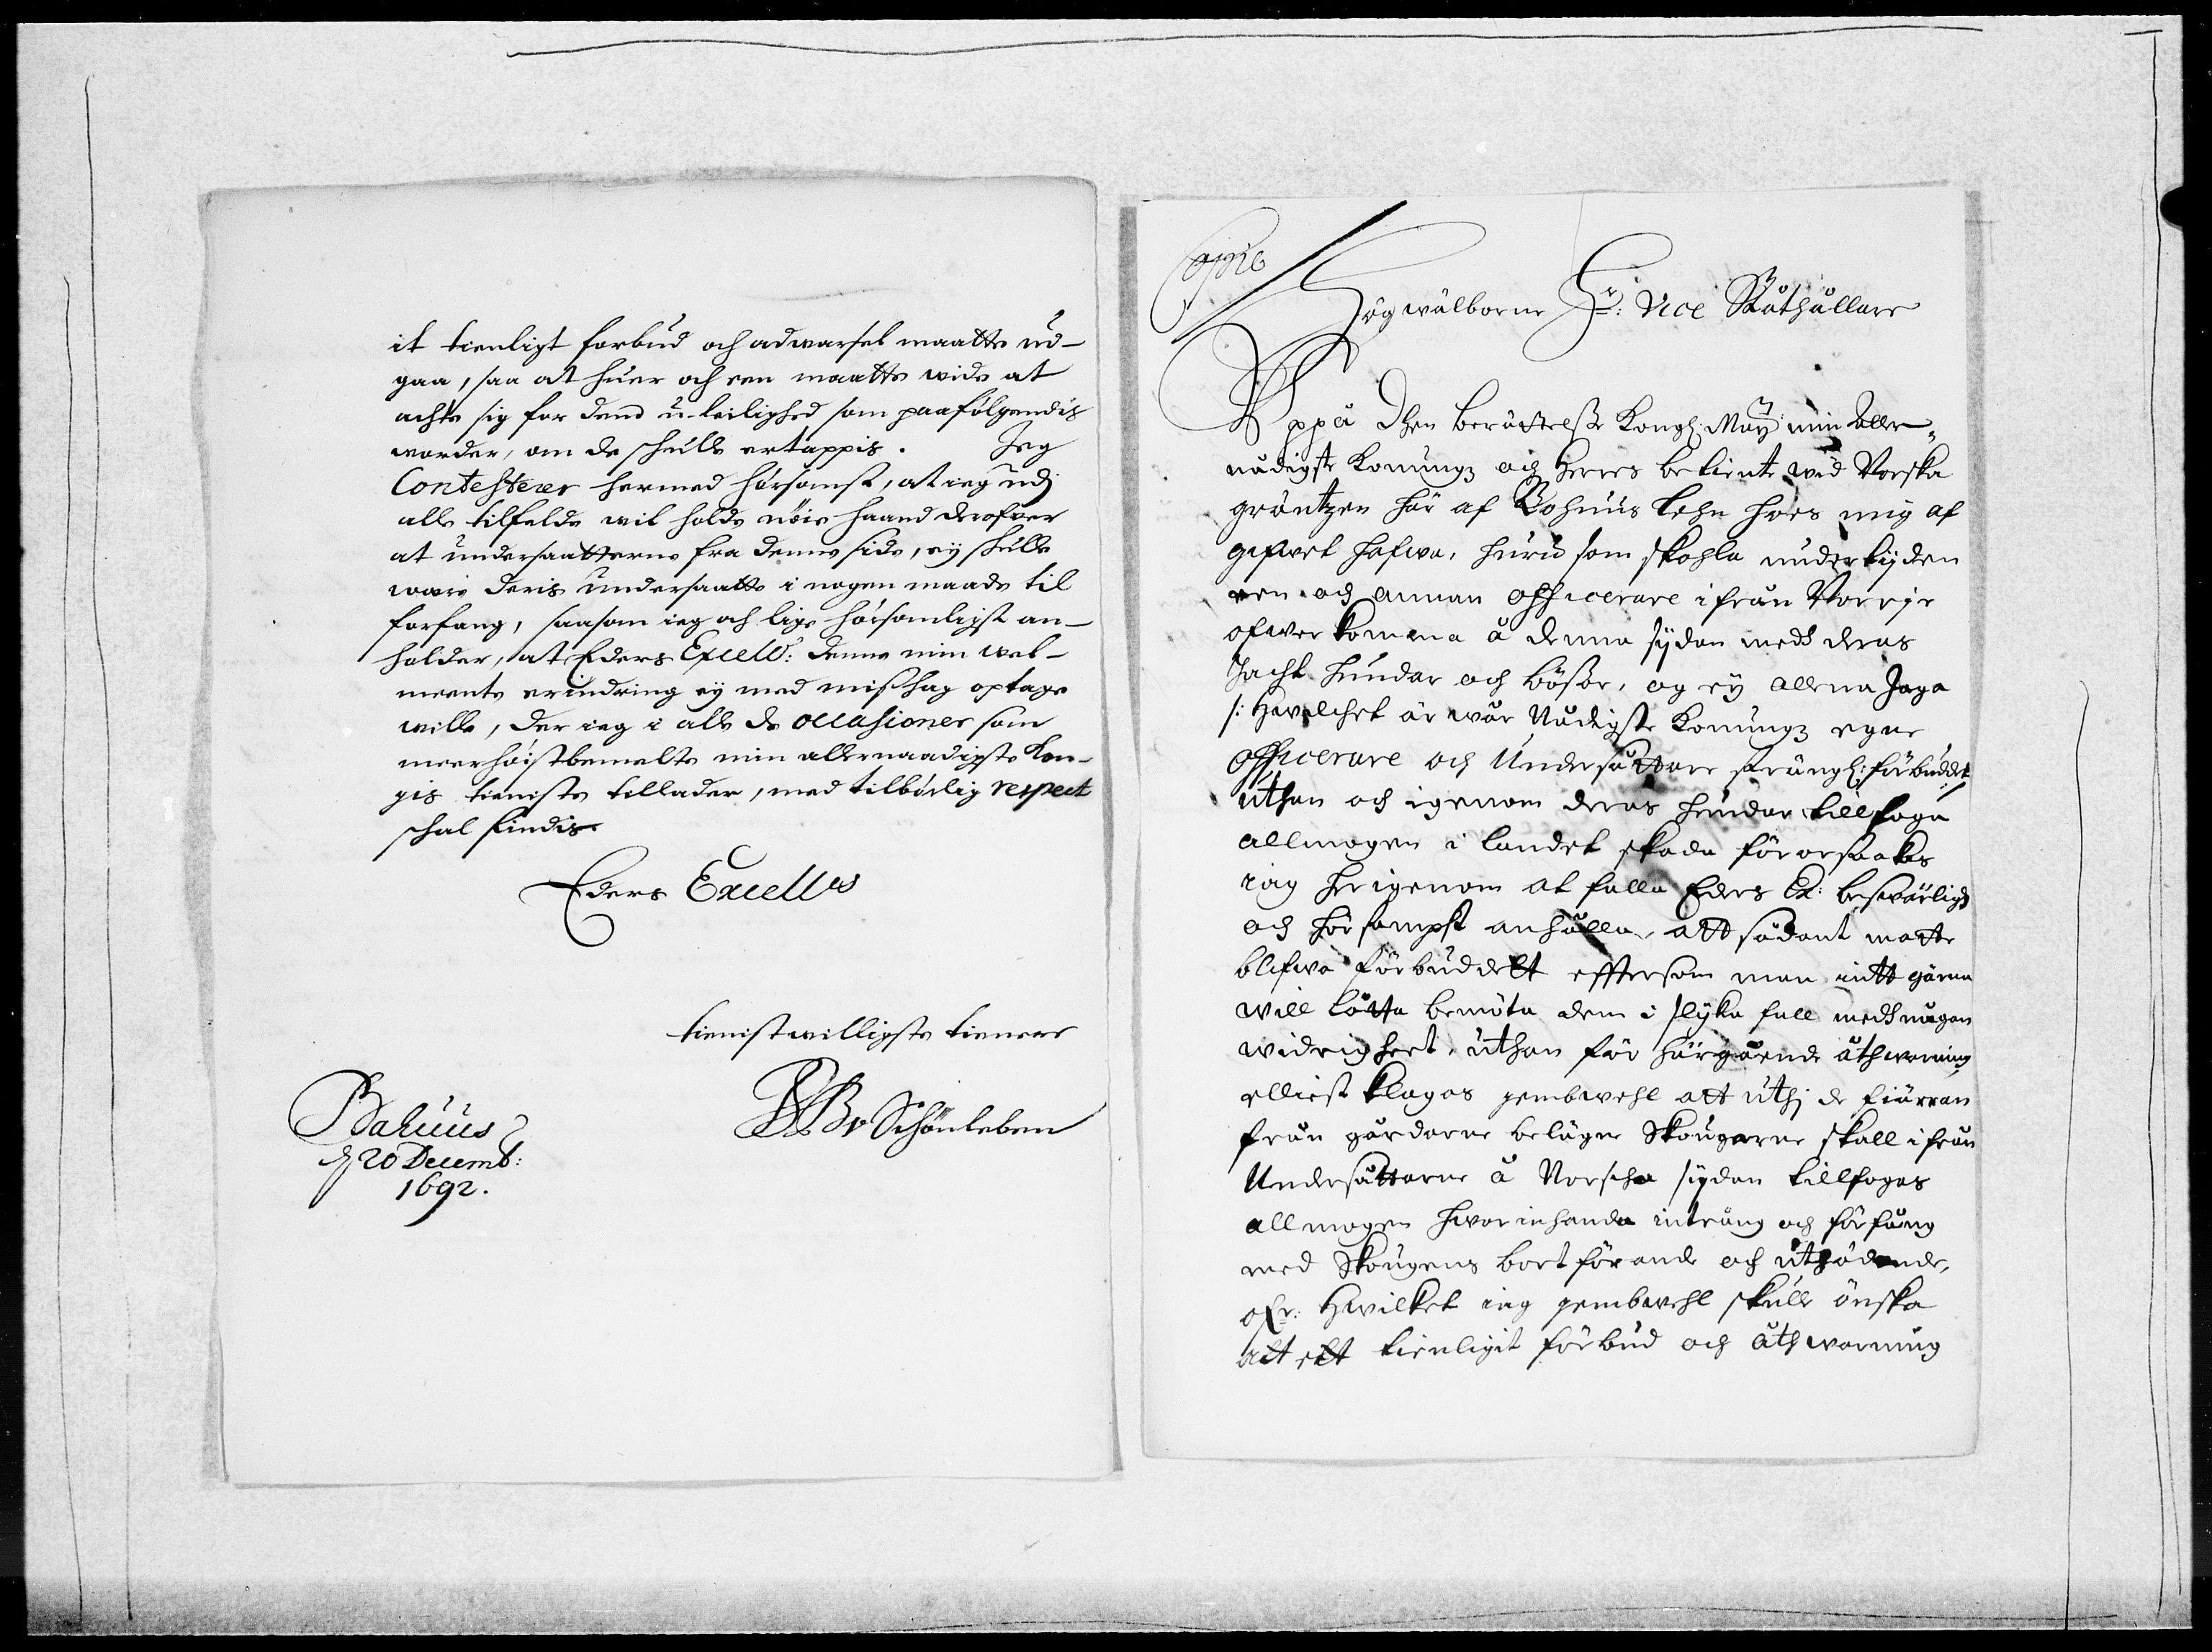 it tienligt forbud och adwarsel maatte ud-
gaa, saa at huer och een maatte wide at
achte sig for dend u-leilighed som paafølgendis
worder, om de schulle ertappis. Jeg
Contesterer hermed hørsomst, at ieg udj
alle tilfelde wil holde nøie haand derofwer
at undersaatterne fra denne side, ey skulle
were deris undersaatte i nogen maade til
forfang, saasom ieg och lige hørsomligst an-
holder, at Eders Excell: denne min wel-
meente erindring ey med misshag optage
wille, der ieg i alle de occasioner som
meerhøistbemelte min allernaadigste Kon-
gis tieniste tillader, med tilbørlig respect
schal findis
Eders Excell
tienistwilligste tienere
Bahuus
d 20 Decemb:
1692.
v Schönleben
Copie
Högwälborne Hr: Vice Stathållare
Uppå dhen berättelsse Kongl: May min aller-
nådigste Konungz och Herres betiente wid Norska
gräntzen här af Bohuus Lehn hoes mig af
gifwet hafwa, huru som skohla undertijden
een och annan officerare ifrån Norrje
ofwer komma å denna sijdan medh deras
Jacht hundar och bössor, og ey allena Jaga
/: hwilchet är wår Nådigste Konungz egne
officerare och Undersåttare strängl: förbuddet :/
uthan och igenom deras hundar tillfoga
allmogen i landet skada förorsaakas
iag herigenom at falla Eders Ex: beswärligh
och hörsampst anhålla, att sådant matte
blifwa förbuddett effter som man intt gärna
will låtta bemöta dem i slijka fall medh någon
widrigheet, uthan för härgående åthwarning
elliest klagas jembwehl att uthj de fiärran
från gårdarne belägne Skougarne skall ifrån
Undersåttarne å Norscha sijdan tillfogas
allmogen hwarjehanda intrång och förfång
med Skougens bortförande och uthödande,
ofr: Hwilket iag jembwehl skulle önska
att ett tienligit förbud och åthwarning